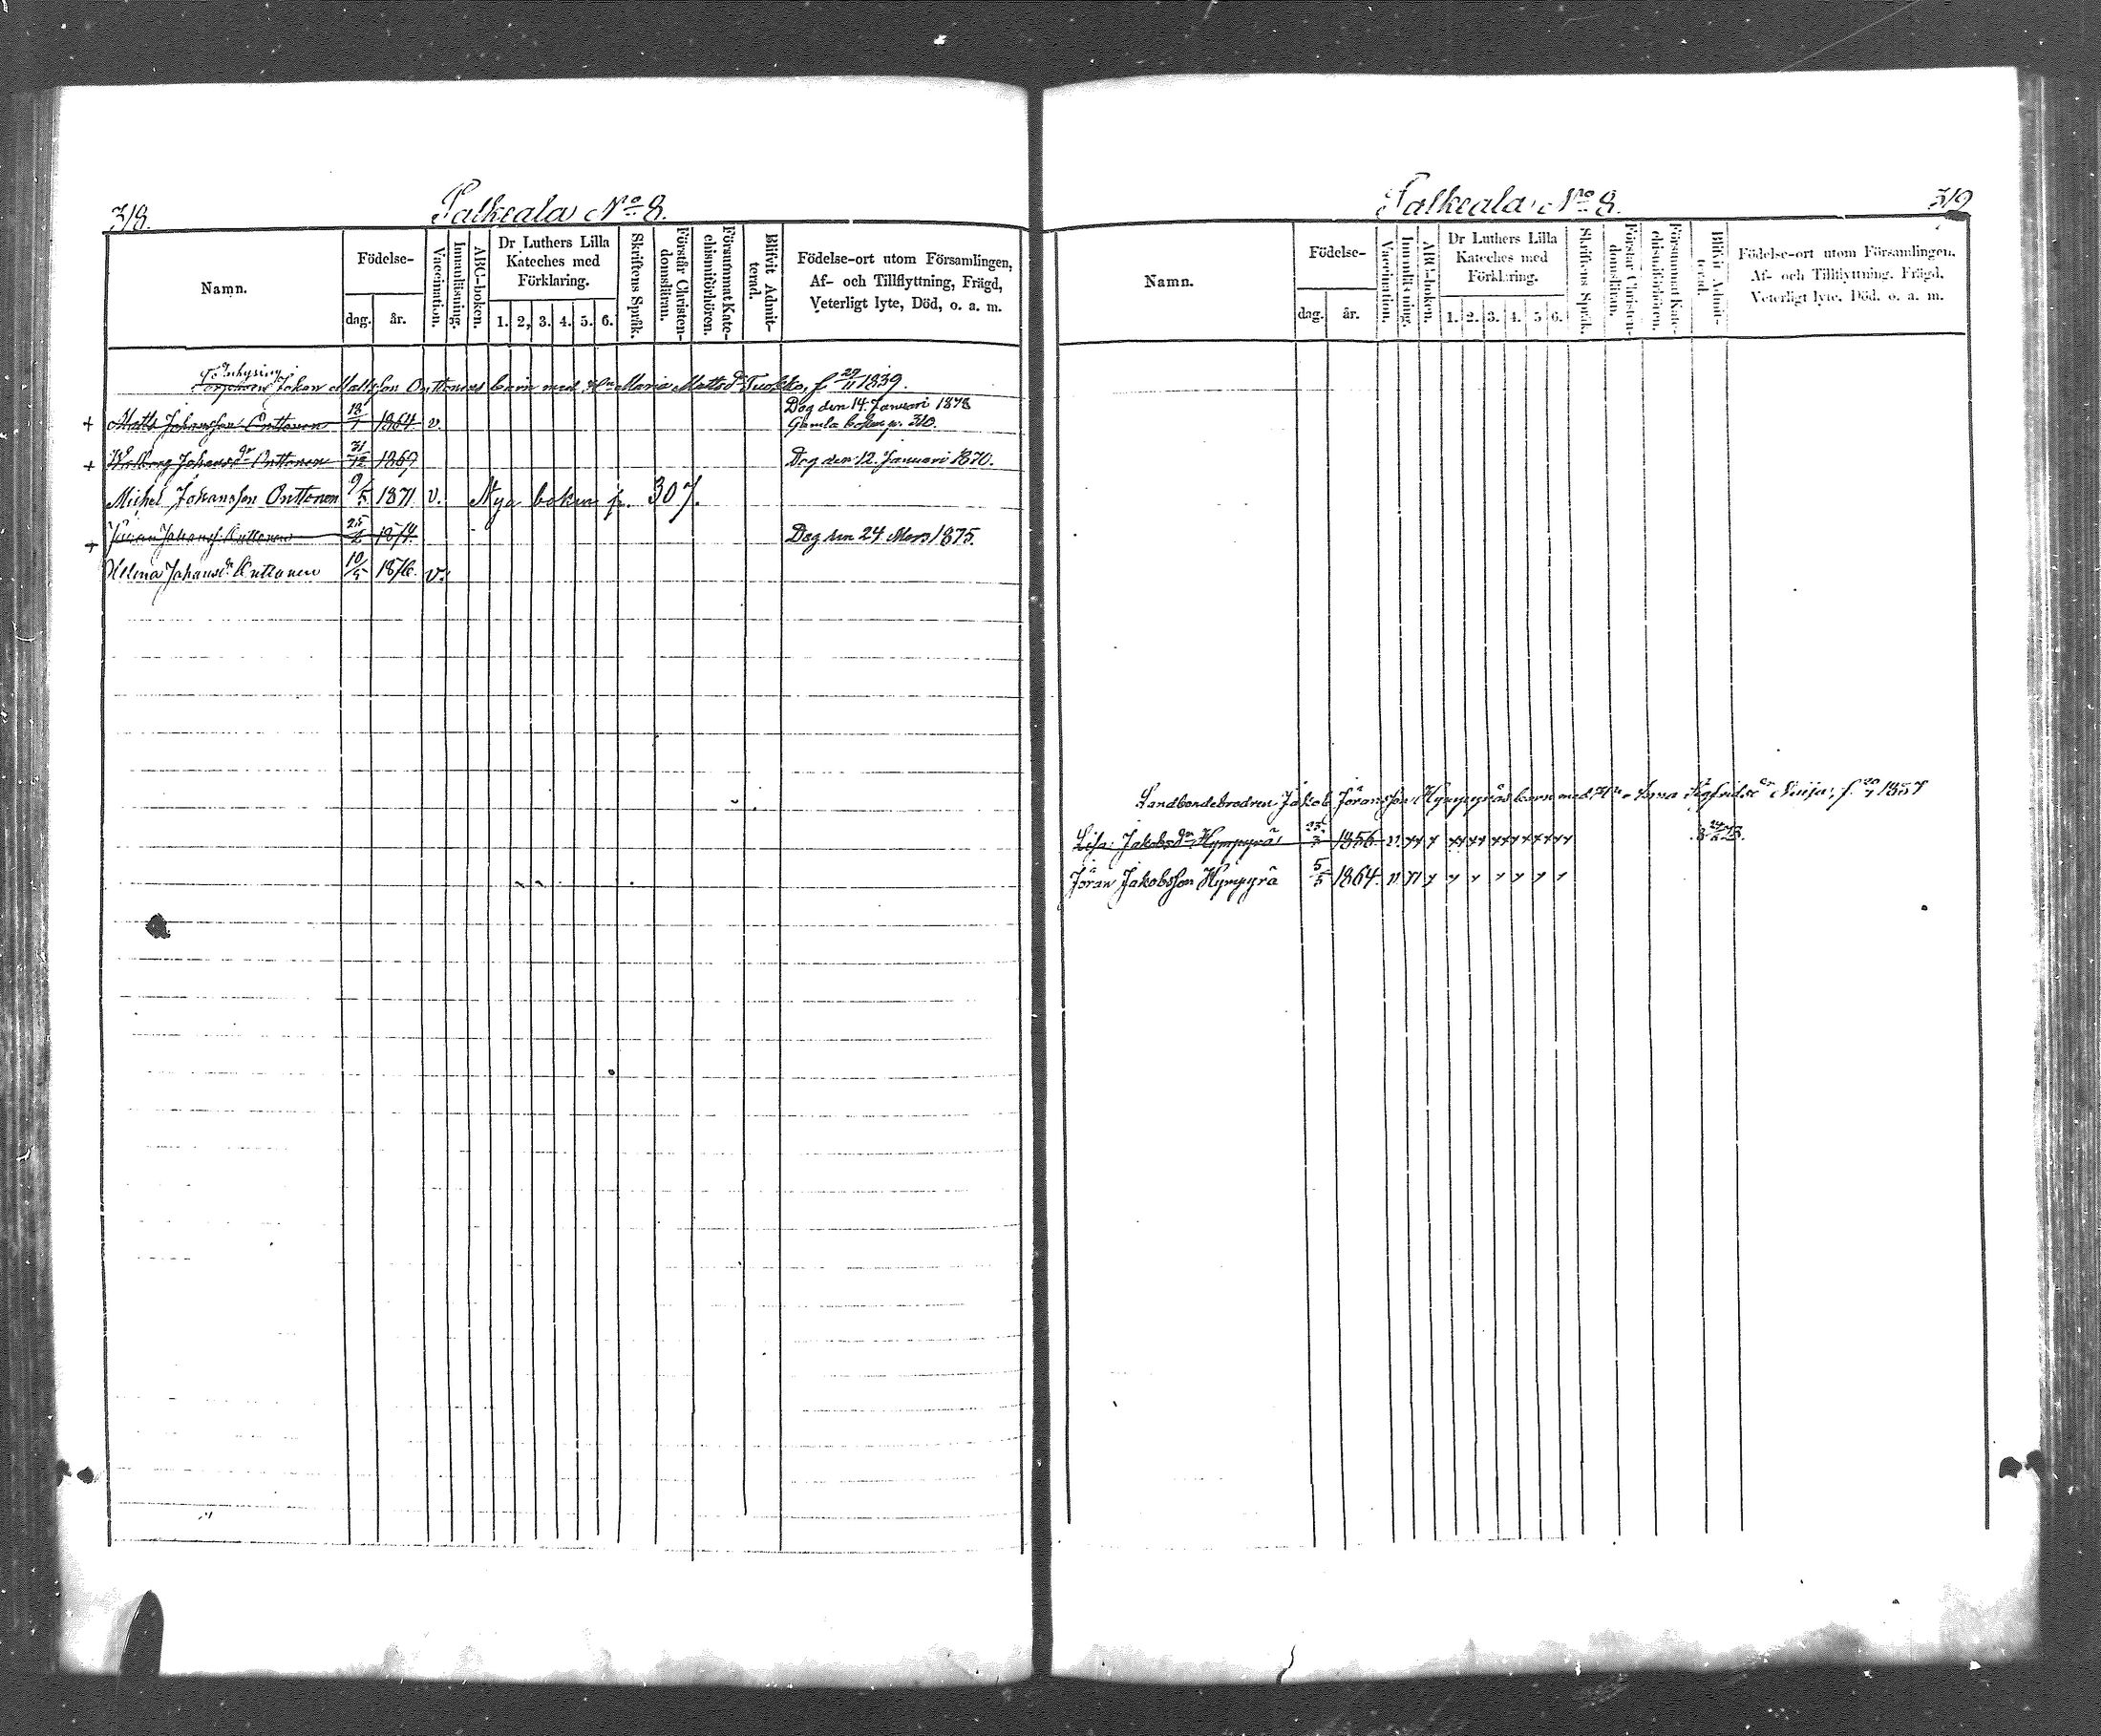 318.
Valkeala No 8.
Namn.
Födelse-
dag.
år.
Vaccination.
Innanläsning.
ABC-boken.
Dr Luthers Lilla
Kateches med
Förklaring.
1. 2. 3. 4. 5. 6.
Skriftens Språk.
Förstår Christen-
domsläran.
Försummat Kate-
chismiförhören.
Blifvit Admit-
terad.
Födelse-ort utom Församlingen,
Af- och Tillflyttning, Frägd,
Veterligt lyte, Död, o. a. m.
Inhysing
Johan Mattsson Onttonens barn med Hu Maria Mattsdr Tuokko, f 29/11 1839.
+ Matts Johansson Onttonen 18/1 1864 v. Dog den 14. Januari 1878
Gamla boken p. 310.
+ Walborg Johansdr Onttonen 31/12 1869 Dog den 12. Januari 1870.
Michel Johansson Onttonen 9/5 1871 v. Nya boken p. 307.
+ Johanss. Onttonen 25/2 1874 Dog den 24 Mars 1875.
Helena Johansdr Onttonen 10/5 1876. v.
Valkeala No 8.
319
Namn.
Födelse-
dag.
år.
Vaccination.
Innanläsning.
ABC-boken.
Dr Luthers Lilla
Kateches med
Förklaring.
1. 2. 3. 4. 5. 6.
Skriftens Språk.
Förstår Christen-
domsläran.
Försummat Kate-
chismiförhören.
Blifvit Admit-
terad.
Födelse-ort utom Församlingen.
Af- och Tillflyttning. Frägd,
Veterligt lyte. Död. o. a. m.
Landbondebrodren Jakob Göransson Hymppyräs barn med Hu Anna Sigfridsdr f. 1857
Lisa Jakobsdr Hympyrä 1856 v.
Jöran Jakobsson Hympyrä 5/5 1864. v